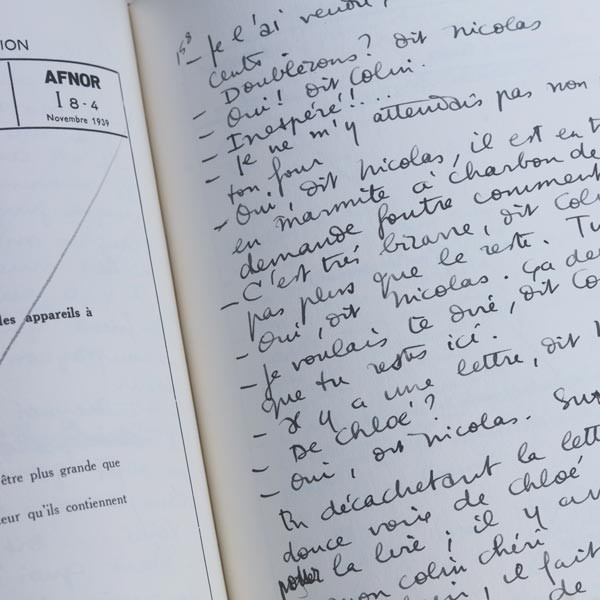 ION
AFNOR
I 8-4
Novembre 1939
les appareils à
être plus grande que
eur qu'ils contiennent
158
- Je l'ai vendu,
cents
- Doublezons? dit Nicolas
- Oui! dit Colin.
- Inespéré!...
- Je ne m'y attendais pas non
ton four
- Oui, dit Nicolas, il est en t
en marmite à charbon de
demande foutre comment
- C'est très bizarre, dit Col
pas plus que le reste. Tu
- Oui, dit Nicolas. Ça de
- Je voulais te dire, dit Co
que tu restes ici.
- Il y a une lettre, dit N
- De Chloé?
- Oui, dit Nicolas. Sur
En décachetant la lett
douce voix de Chloé
pour la lire; il y av
mon colin chéri
il fait
de